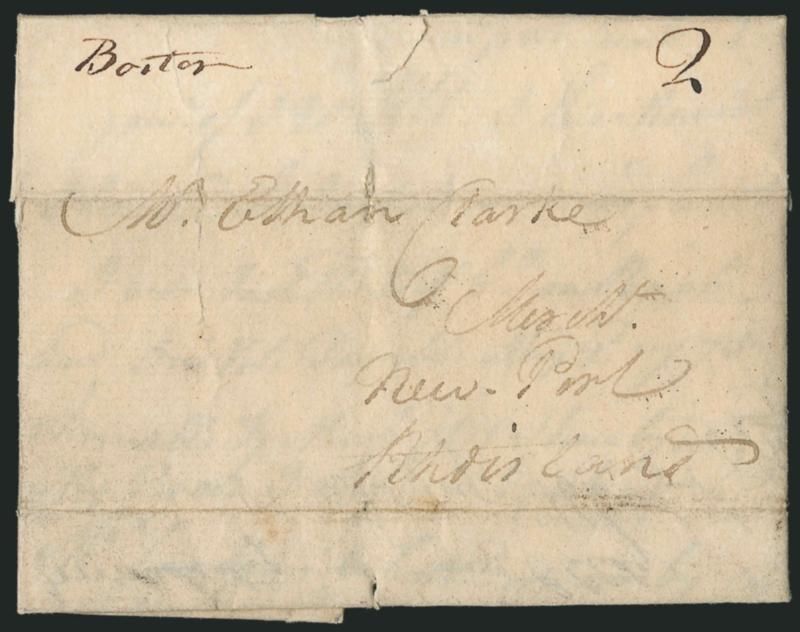 Boston 2
Mr. Ethan Clarke
Mercht.
New-Port
Rhdisland